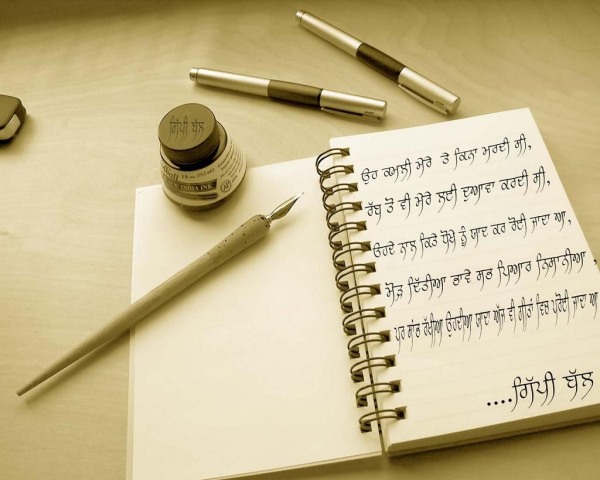 ਗਿੱਪੀ ਢਿੱਲ
INDIA INK
ਉਹ ਕਮਲੀ ਮੇਰੇ ਤੇ ਕਿਨਾ ਮਰਦੀ ਸੀ,
ਰੱਬ ਤੋਂ ਵੀ ਮੇਰੇ ਲਈ ਦੁਆਵਾ ਕਰਦੀ ਸੀ,
ਓਹਦੇ ਨਾਲ ਕਿਤੇ ਧੋਖੇ ਨੂੰ ਯਾਦ ਕਰ ਰੋਈ ਜਾਦਾ ਆ,
ਮੋੜ ਦਿੱਤੀਆ ਭਾਵੇ ਸਭ ਪਿਆਰ ਨਿਸ਼ਾਨੀਆ ,
ਪਰ ਸਾਂਭ ਰੱਖੀਆ ਉਹਦੀਆ ਯਾਦਾ ਅੱਜ ਵੀ ਗੀਤਾਂ ਵਿਚ ਪਰੋਈ ਜਾਦਾ ਆ
....ਗਿੱਪੀ ਢਿੱਲ